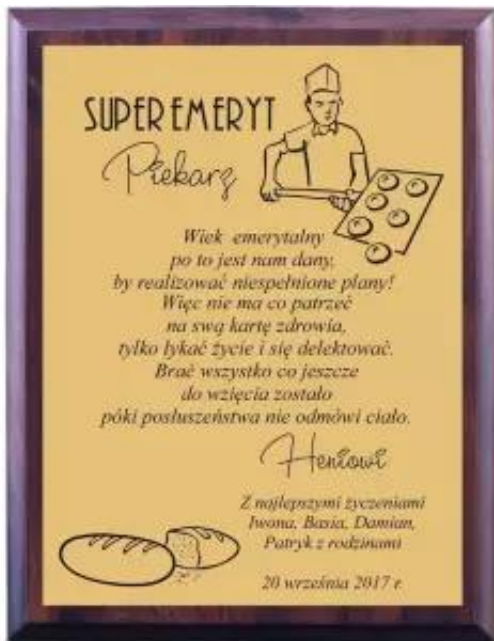 SUPER EMERYT
Piekarz
Wiek emerytalny
po to jest nam dany,
by realizować niespełnione plany!
Więc nie ma co patrzeć
na swą kartę zdrowia,
tylko łykać życie i się delektować.
Brać wszystko co jeszcze
do wzięcia zostało
póki posłuszeństwa nie odmówi ciało.
Heniowi
Z najlepszymi życzeniami
Iwona, Basia, Damian,
Patryk z rodzinami
20 września 2017 r